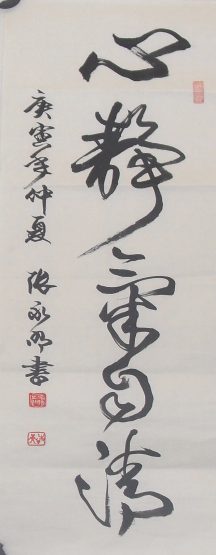 心静氣自清
庚寅年仲夏 張永明書